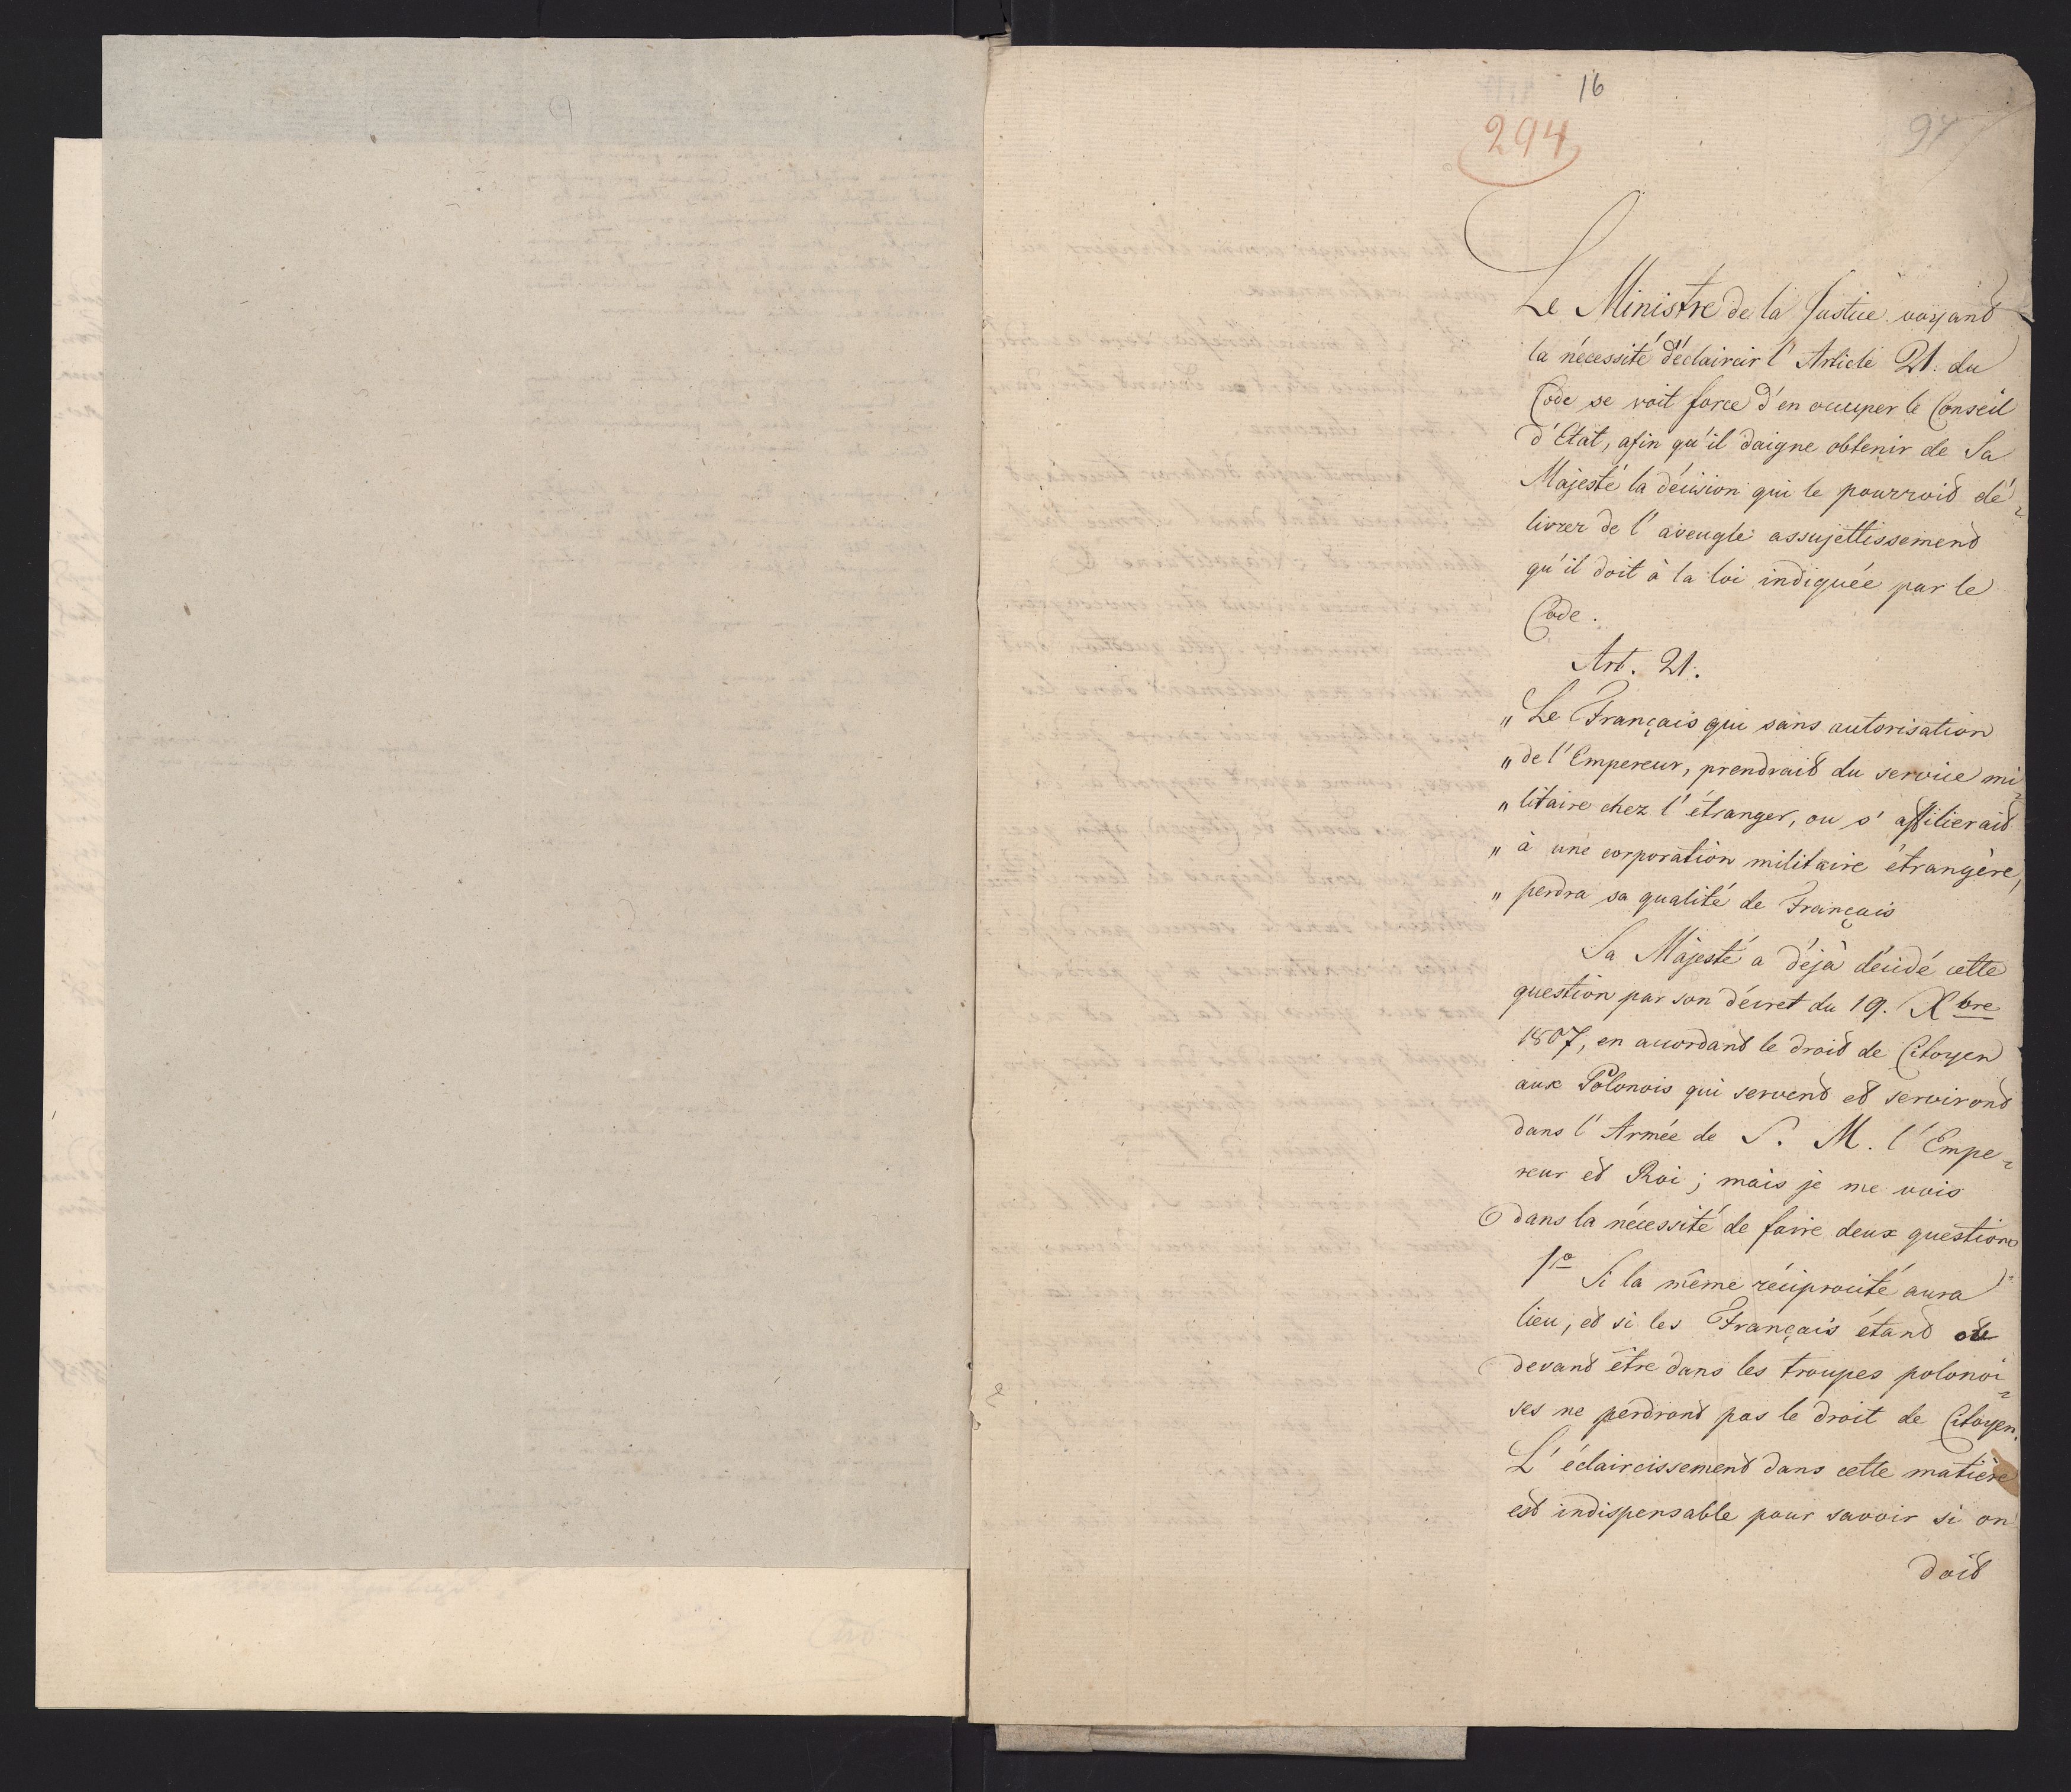 16
294
97
Le Ministre de la Justice voyant
la nécessité d'éclaircir l'Article 21. du
Code se voit forcé d'en occuper le Conseil
d'Etat, afin qu'il daigne obtenir de Sa
Majesté la décision qui le pourroit dé=
livrer de l'aveugle assujettissement
qu'il doit à la loi indiquée par le
Code.
Art. 21.
„ Le Français qui sans autorisation
„ de l'Empereur, prendrait du service mi=
„ litaire chez l'étranger, ou s'affilierait
„ à une corporation militaire étrangère,
„ perdra sa qualité de Français
Sa Majesté a déjà décidé cette
question par son décret du 19. Xbre
1807, en accordant le droit de Citoyen
aux Polonois qui servent et serviront
dans l'Armée de S. M. l'Empe=
reur et Roi; mais je me vois
dans la nécessité de faire deux questions
1o Si la même réciprocité aura
lieu, et si les Français étant ou
devant être dans les troupes polonoi=
ses ne perdront pas le droit de Citoyen.
L'éclaircissement dans cette matière
est indispensable pour savoir si on
doit